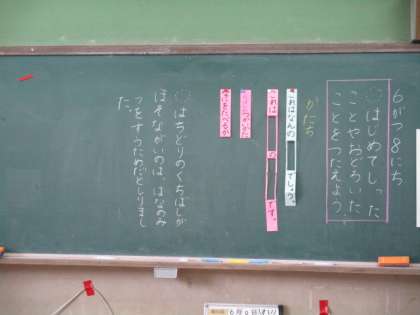 6がつ8にち
はじめてしった
ことやおどろいた
ことをつたえよう
かたち
これはなんの でしょう。
これは の です。
はちどりのくちばしが
ほそながいのは、はなのみ
つをすうためだとしりまし
た。